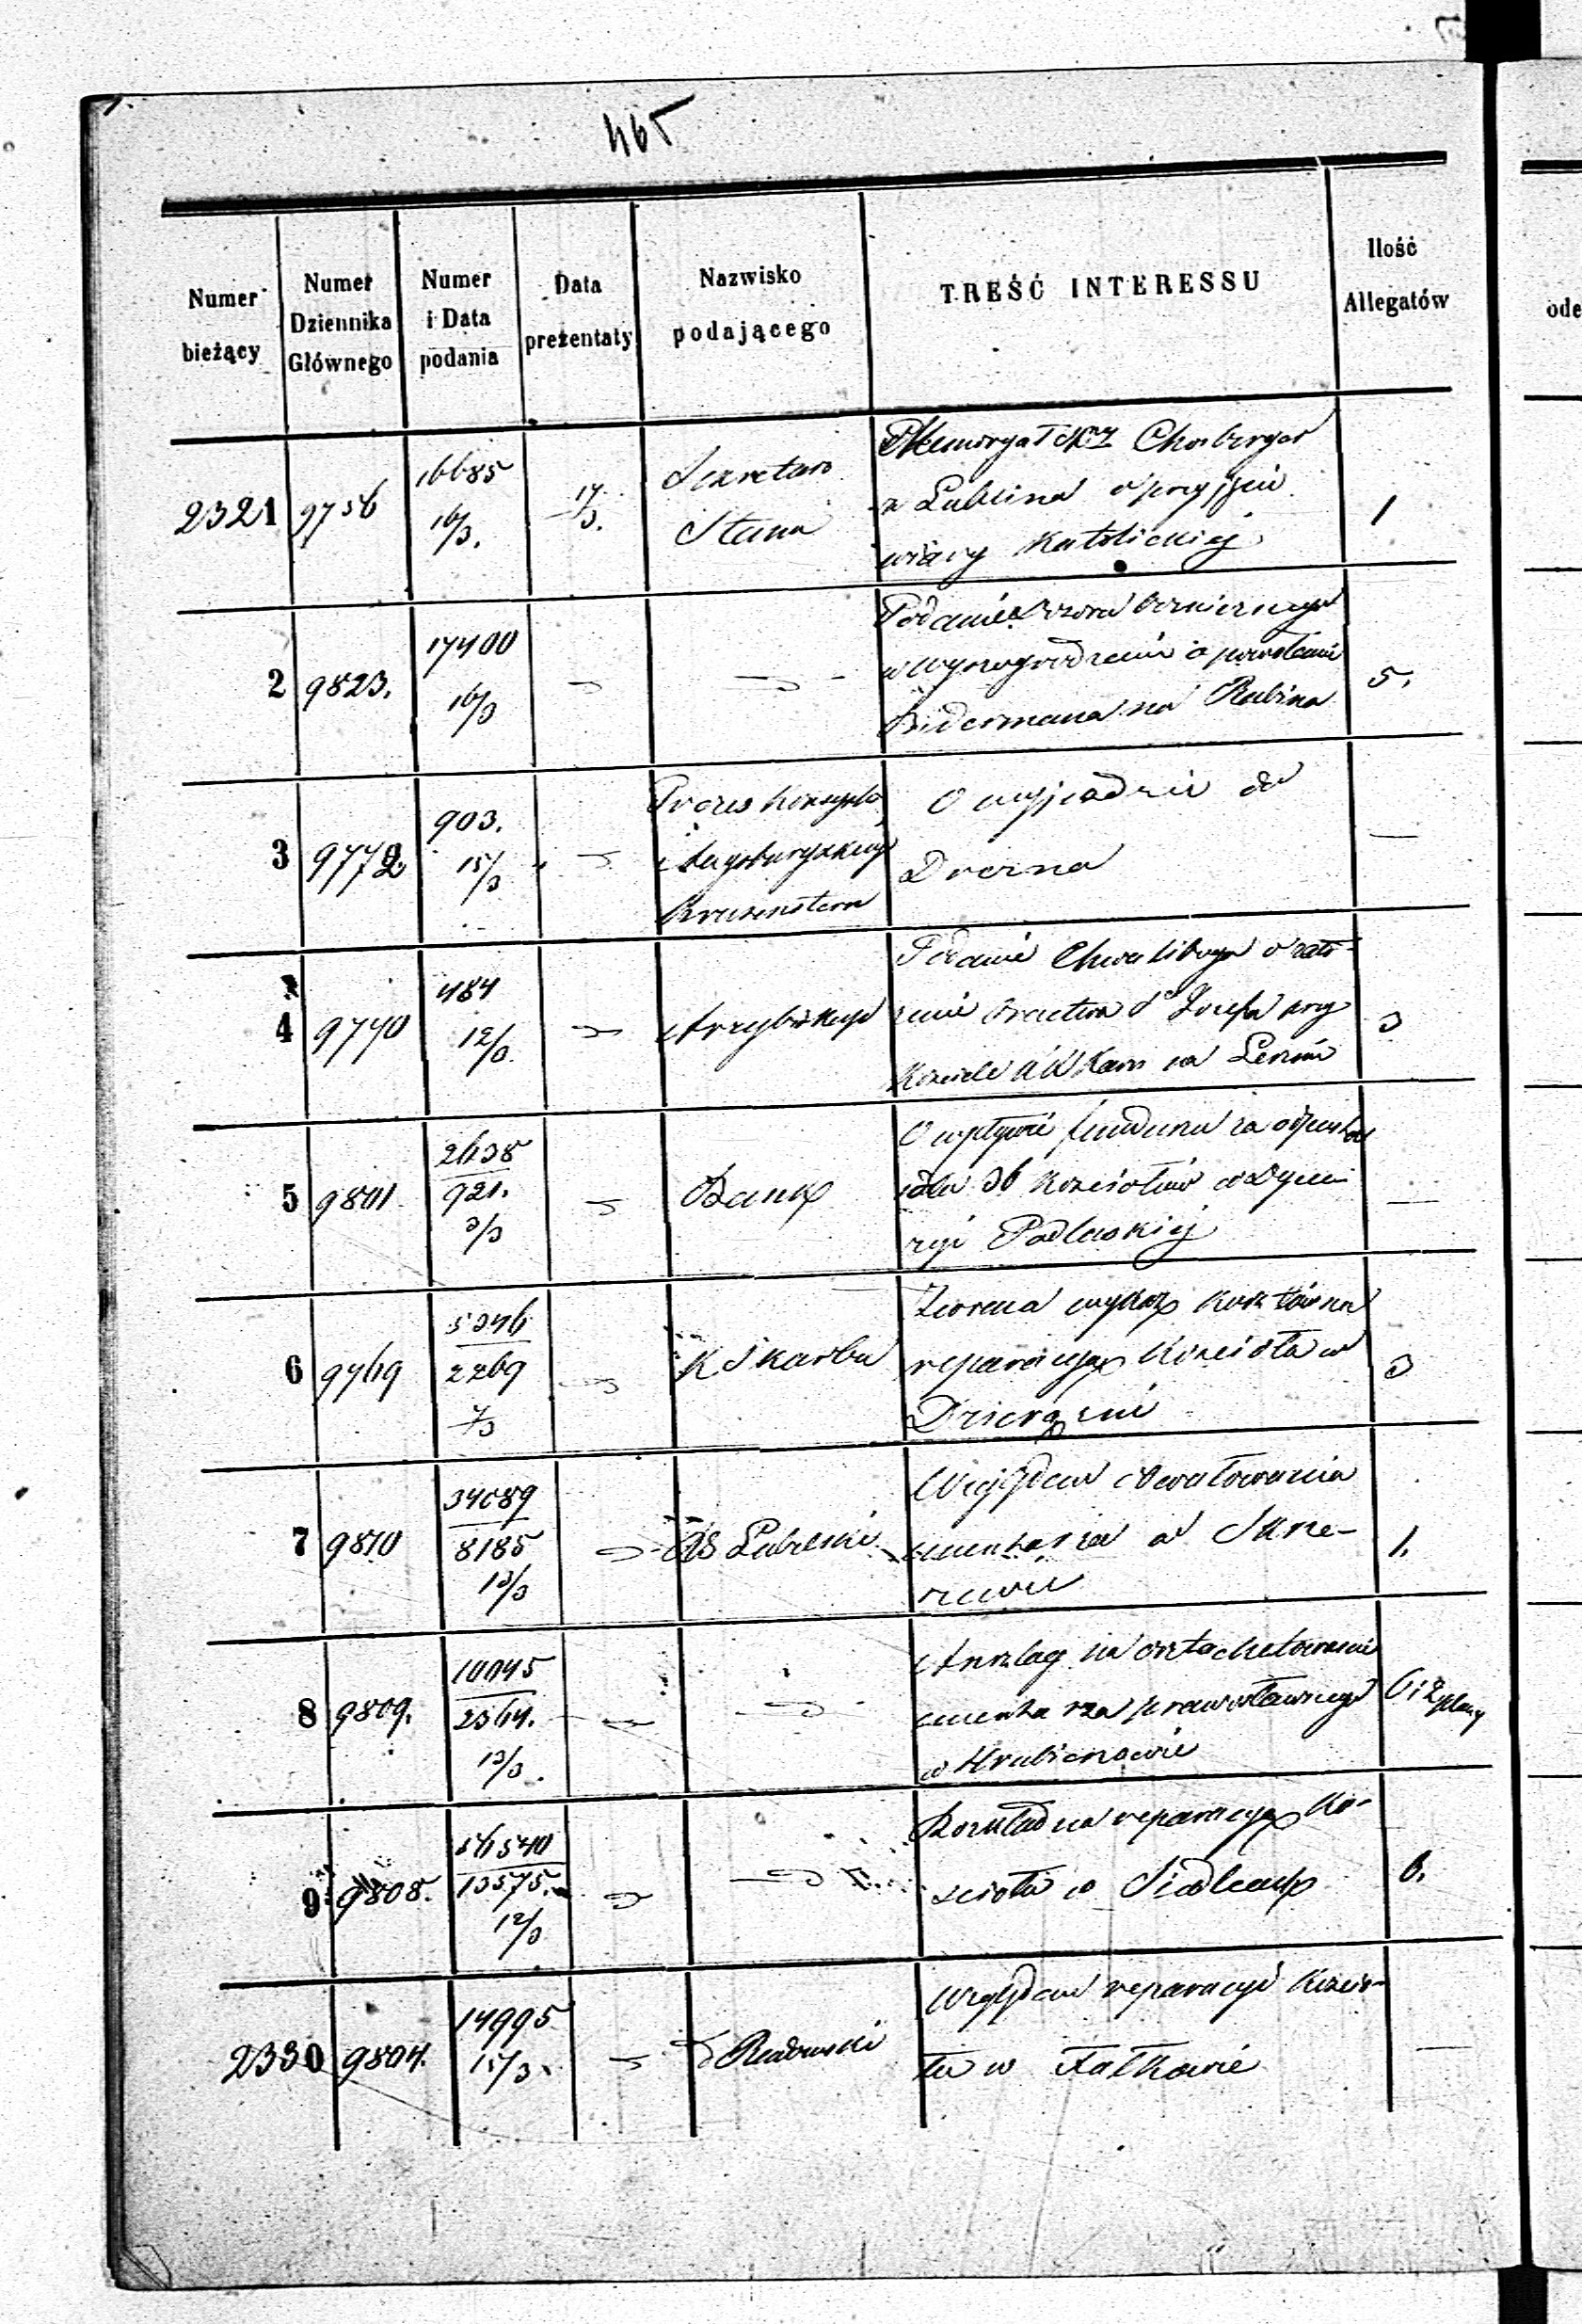 465
Numer bieżący
Numer Dziennika Głównego
Numer i Data podania
Data prezentaty
Nazwisko podającego
TREŚĆ INTERESSU
Ilość Allegatów
ode
2321 9756 16685 16/3. 17/3. Sekretarz Stanu
Memoryał Chosberger
z Lublina o przyjęciu
wiary Katolickiej
1
2 9823. 17400 16/3
Podanie Dozoru Bożniczego
w Wyszogrodzie o powołanie
Bidermana na Rabina
5.
3 9772 903. 15/3
Prezes Konsysto
Augsburgskiego
Kruzenstern
O wyjeździe do
Drezna
—
4 9770 484 12/3 Arcybiskup
Podanie Chwaliboga o zało-
żenie Bractwa Sº Józefa przy
Kościele na Lesznie
3
5 9801 2638 921. 3/3 Bank
O wpływie funduszu za
dla 36 Kościołów w Dyece-
zyi Podlaskiej
—
6 9769 5346 2269 7/3 K Skarbu
Zwraca wykaz kosztów na
reparacyę Kościoła w
Dzierążni
3
7 9810 34089 8185 13/3 Lubelski
Względem obwałowania
cmentarza w Skie-
1.
8 9809. 10045 2364. 13/3
Anszlag na osztachetowanie
cmentarza prawosławnego
w Hrubieszowie
6 i 2 plany
9 9808. 56540 13575. 12/3
Rozkład na reparacyę Ko-
ścioła w Siedlcach
6.
2330 9804. 14995 15/3 Radomski
Względem reparacyi Kościo-
ła w Fałkowie
—